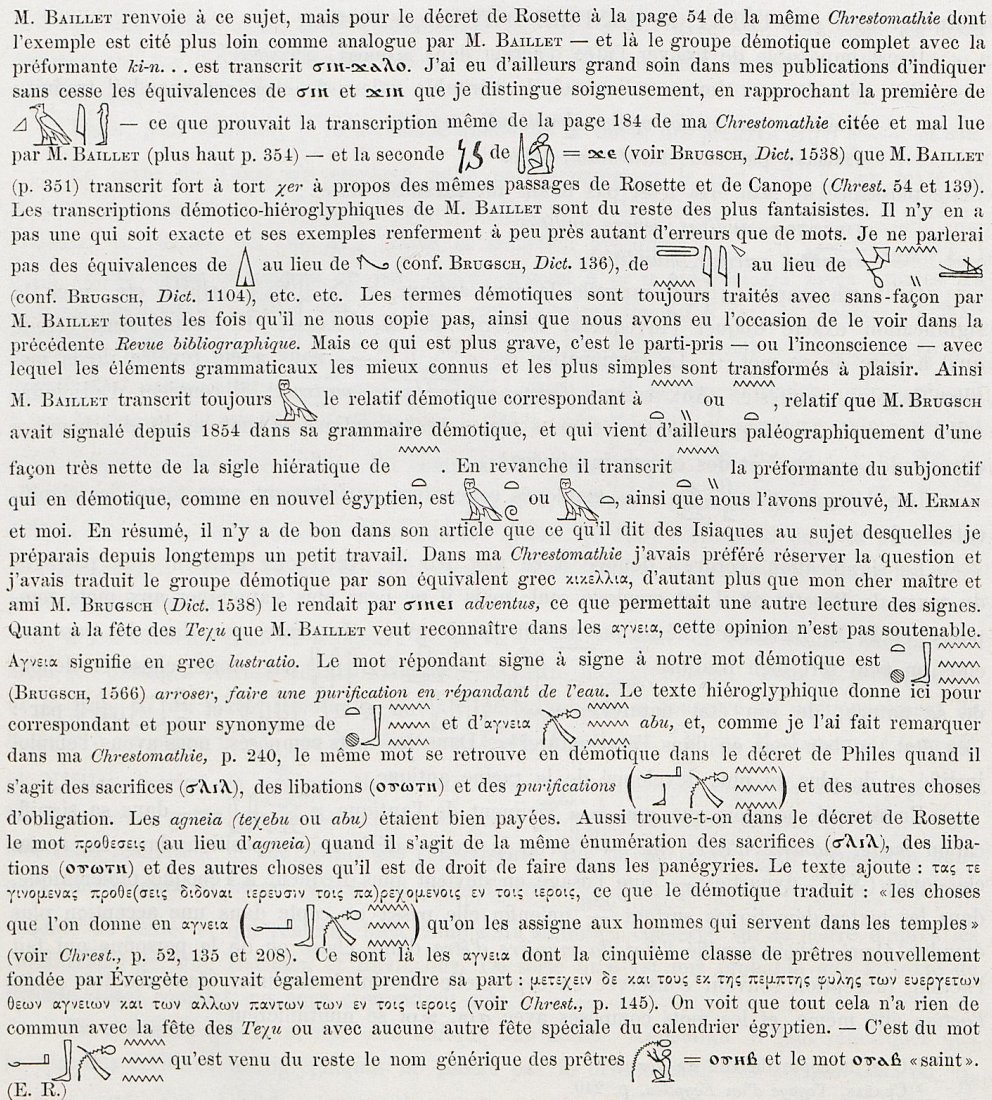 M. BAILLET renvoie à ce sujet, mais pour le décret de Rosette à la page 54 de la même Chrestomathie dont
l'exemple est cité plus loin comme analogue par M. BAILLET — et là le groupe démotique complet avec la
préformante ki-n... est transcrit ϭⲓⲛ-ϫⲁⲗⲟ. J'ai eu d'ailleurs grand soin dans mes publications d'indiquer
sans cesse les équivalences de ϭⲓⲛ et ϫⲓⲛ que je distingue soigneusement, en rapprochant la première de
— ce que prouvait la transcription même de la page 184 de ma Chrestomathie citée et mal lue
par M. BAILLET (plus haut p. 354) — et la seconde de = ϫⲉ (voir BRUGSCH, Dict. 1538) que M. BAILLET
(p. 351) transcrit fort à tort χer à propos des mêmes passages de Rosette et de Canope (Chrest. 54 et 139).
Les transcriptions démotico-hiéroglyphiques de M. BAILLET sont du reste des plus fantaisistes. Il n'y en a
pas une qui soit exacte et ses exemples renferment à peu près autant d'erreurs que de mots. Je ne parlerai
pas des équivalences de au lieu de (conf. BRUGSCH, Dict. 136), de au lieu de
(conf. BRUGSCH, Dict. 1104), etc. etc. Les termes démotiques sont toujours traités avec sans-façon par
M. BAILLET toutes les fois qu'il ne nous copie pas, ainsi que nous avons eu l'occasion de le voir dans la
précédente Revue bibliographique. Mais ce qui est plus grave, c'est le parti-pris — ou l'inconscience — avec
lequel les éléments grammaticaux les mieux connus et les plus simples sont transformés à plaisir. Ainsi
M. BAILLET transcrit toujours 𓅓 le relatif démotique correspondant à ou , relatif que M. BRUGSCH
avait signalé depuis 1854 dans sa grammaire démotique, et qui vient d'ailleurs paléographiquement d'une
façon très nette de la sigle hiératique de . En revanche il transcrit la préformante du subjonctif
qui en démotique, comme en nouvel égyptien, est ou , ainsi que nous l'avons prouvé, M. ERMAN
et moi. En résumé, il n'y a de bon dans son article que ce qu'il dit des Isiaques au sujet desquelles je
préparais depuis longtemps un petit travail. Dans ma Chrestomathie j'avais préféré réserver la question et
j'avais traduit le groupe démotique par son équivalent grec κικελλια, d'autant plus que mon cher maître et
ami M. BRUGSCH (Dict. 1538) le rendait par ϭⲓⲛⲉⲓ adventus, ce que permettait une autre lecture des signes.
Quant à la fête des Teχu que M. BAILLET veut reconnaître dans les αγνεια, cette opinion n'est pas soutenable.
Αγνεια signifie en grec lustratio. Le mot répondant signe à signe à notre mot démotique est
(BRUGSCH, 1566) arroser, faire une purification en répandant de l'eau. Le texte hiéroglyphique donne ici pour
correspondant et pour synonyme de et d'αγνεια abu, et, comme je l'ai fait remarquer
dans ma Chrestomathie, p. 240, le même mot se retrouve en démotique dans le décret de Philes quand il
s'agit des sacrifices (ϭⲗⲓⲗ), des libations (ⲟⲩⲱⲧⲛ) et des purifications ( ) et des autres choses
d'obligation. Les agneia (teχebu ou abu) étaient bien payées. Aussi trouve-t-on dans le décret de Rosette
le mot προθεσεις (au lieu d'agneia) quand il s'agit de la même énumération des sacrifices (ϭⲗⲓⲗ), des liba-
tions (ⲟⲩⲱⲧⲛ) et des autres choses qu'il est de droit de faire dans les panégyries. Le texte ajoute : τας τε
γινομενας προθε(σεις διδοναι ιερευσιν τοις πα)ρεχομενοις εν τοις ιεροις, ce que le démotique traduit : «les choses
que l'on donne en αγνεια ( ) qu'on les assigne aux hommes qui servent dans les temples»
(voir Chrest., p. 52, 135 et 208). Ce sont là les αγνεια dont la cinquième classe de prêtres nouvellement
fondée par Évergète pouvait également prendre sa part : μετεχειν δε και τους εκ της πεμπτης φυλης των ευεργετων
θεων αγνειων και των αλλων παντων των εν τοις ιεροις (voir Chrest., p. 145). On voit que tout cela n'a rien de
commun avec la fête des Teχu ou avec aucune autre fête spéciale du calendrier égyptien. — C'est du mot
qu'est venu du reste le nom générique des prêtres = ⲟⲩⲏⲃ et le mot ⲟⲩⲁⲃ «saint».
(E. R.)